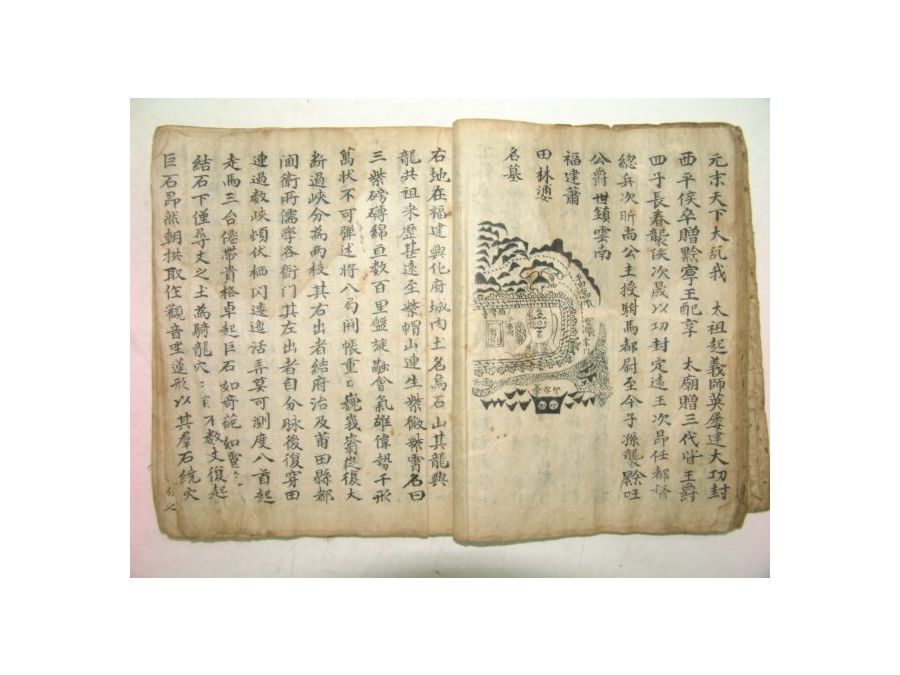 元末天下大乱我 太祖起義師英屡建大功封
西平侯卒贈黔寧王配享 太廟贈三代皆王爵
四子長春襲侯次晟以功封定遠王次昂任都督
緫兵次昕尚公主授駙馬都尉至今子孫襲黔
公爵世鎮雲南
福建莆
田林
名墓
右地在福建興化府城內土名烏石山其龍與
龍共祖来歷甚遠至紫帽山連生紫微紫霄名曰
三紫磅礴綿亘数百里盤旋融會氣雄偉勢千形
萬状不可弹述将入局開帳重巍峩復大
断過峽分為两枝其右出者結府治及莆田縣都
間衝两儒學各衙门其左出者自分脉後復穿田
連過数峽頻伏栖閃逶迤活弄莫可測度入首起
走馬三台僊帶貴格卓起巨石如奇
結石下僅尋丈之土為騎龍穴 数丈復起
巨石昂然朝拱取作觀音坐蓮形以其群石繞穴